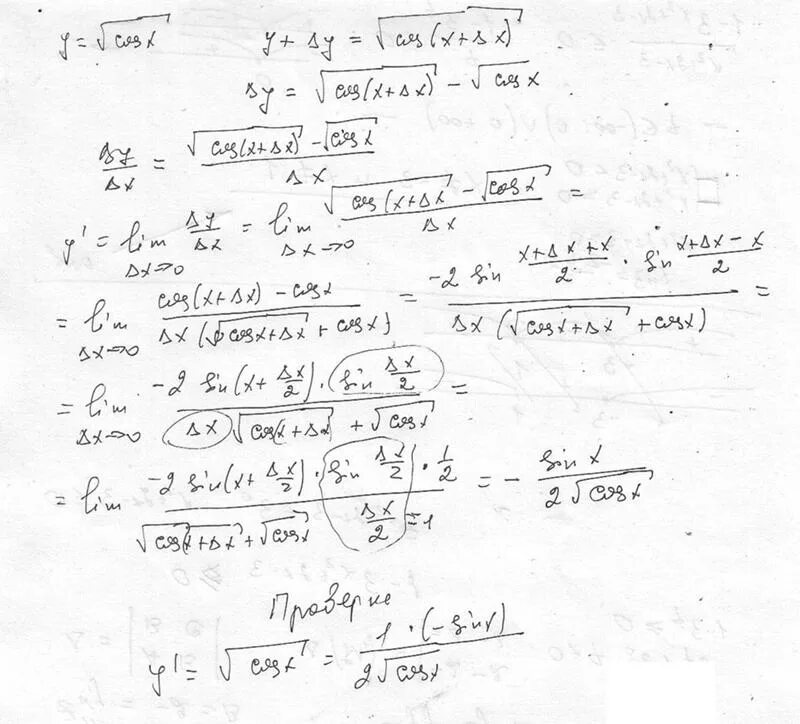 y = √cos x    y + Δy = √cos(x+Δx)
Δy = √cos(x+Δx) − √cos x
Δy/Δx = (√cos(x+Δx) − √cos x)/Δx
y' = lim Δx→0 Δy/Δx = lim Δx→0 (√cos(x+Δx) − √cos x)/Δx =
= lim Δx→0 (cos(x+Δx) − cos x)/(Δx(√cos x+Δx + cos x)) = (−2 sin (x+Δx+x)/2 · sin (x+Δx−x)/2)/(Δx(√cos x+Δx + cos x)) =
= lim Δx→0 (−2 sin(x+Δx/2) · sin Δx/2)/(Δx √cos(x+Δx) + √cos x) =
= lim (−2 sin(x+Δx/2) · sin Δx/2 · 1/2)/(√cos(x+Δx) + √cos x  Δx/2 = 1) = − sin x/(2√cos x)
Проверка
y' = √cos x' = 1·(−sin x)/(2√cos x)